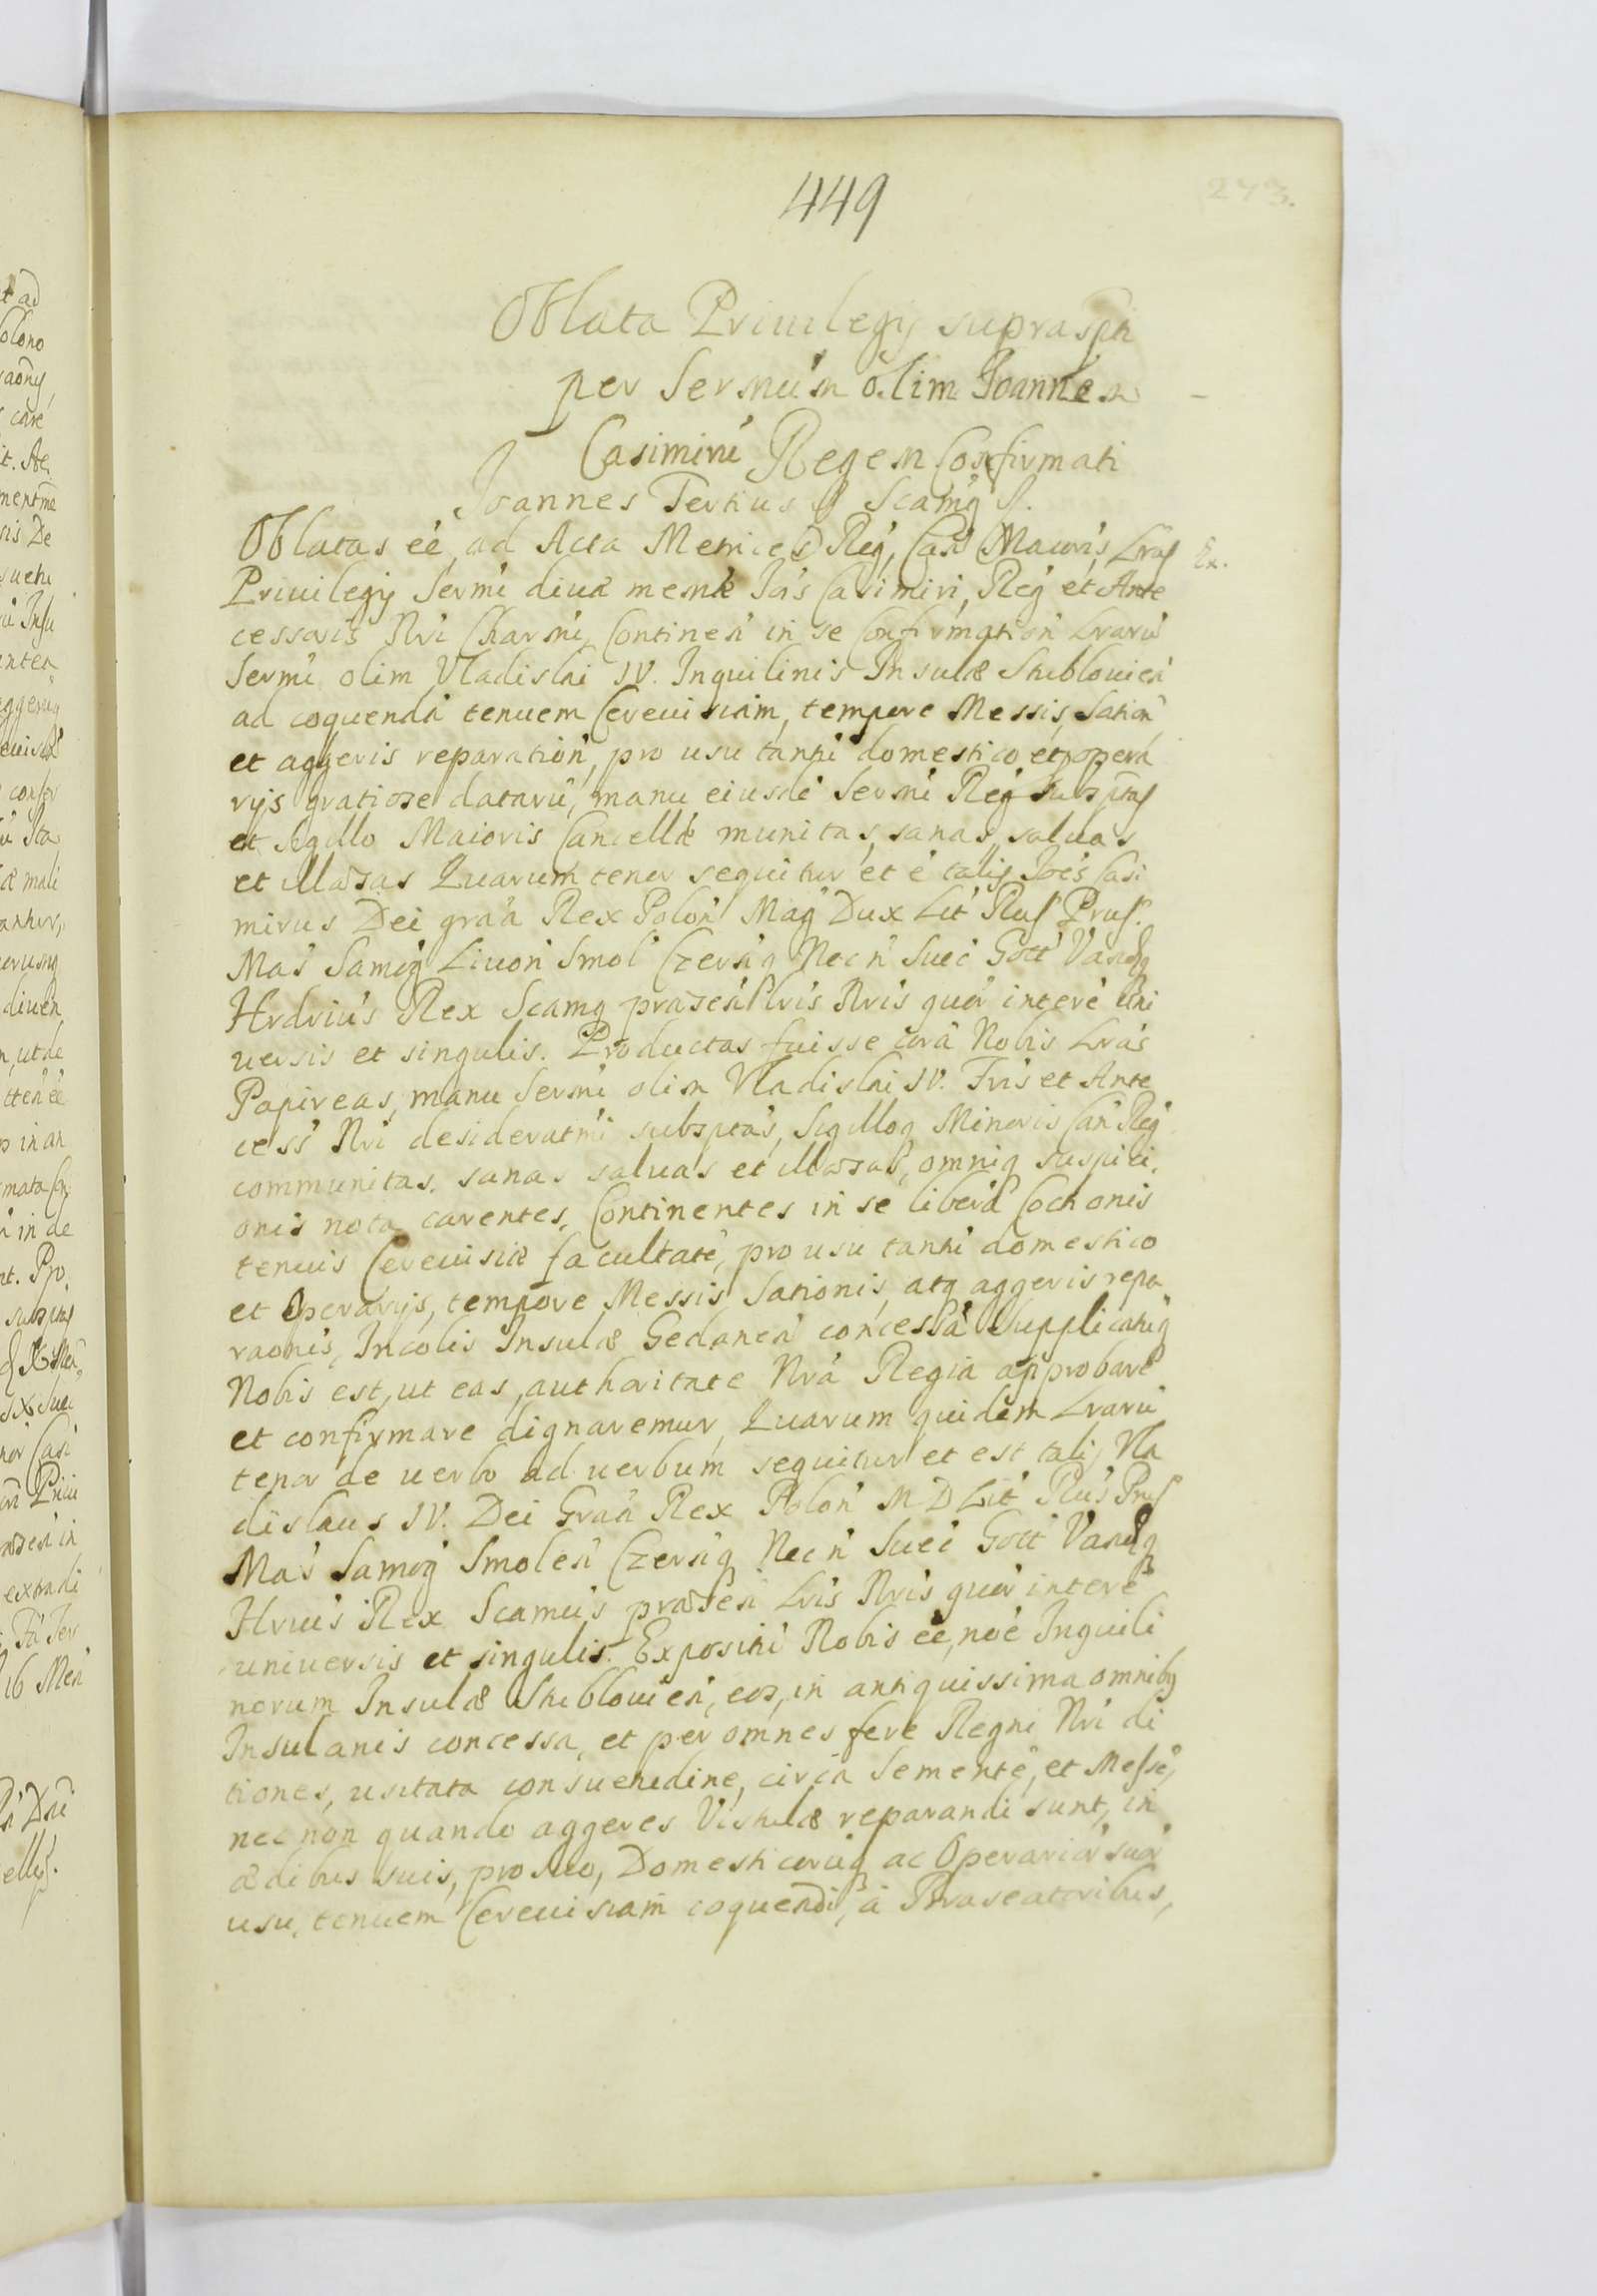 449
273.
Oblata Priuilegij suprasptı
per Sermum olim Joannem
Casimirũ Regem Confirmati
Joannes Tertius Scamq
Oblatas eẽ ad Acta Metrices Reg, Cası Maioris, Lras
Ex.
Priuilegij Sermi diuæ memæ Jois Casimiri, Reg et Ante
cessoris Nri Charmi, Continen in se Confirmation Lrarũ
Sermi olim Vladislai IV. Inquilinis Insulæ Stiblouien
ad coquendã tenuem Cereuisiam, tempore Messis, Sation
et aggeris reparation, pro usu tantũ domestico et opera
rijs gratiose datarũ, manu eiusdẽ Sermi Reg subsptas
et Sigillo Maioris Cancellæ munitas, sanas, saluas
et illæsas Quarum tenor sequitur et ẽ talis Joẽs Casi
mirus Dei graã Rex Polon Mag Dux Lit Rus Prus.
Mas Samog Liuon Smol Czernq Nec n Suec Gott Vandq
Hrdrius Rex Scamq præsen Lris Nris quor interẽ uni
uersis et singulis. Productas fuisse corã Nobis Lras
Papireas, manu Sermi olim Vladislai IV. Fris et Ante
cess Nri desideratmi subsptas, Sigilloq Minoris Can Reg
communitas. sanas saluas et illæsas, omniq suspici,
onis nota carentes, Continentes in se liberã Coctionis
tenuis Cereuisiæ facultatẽ, pro usu tantũ domestico
et Operarijs, tempore Messis Sationis, atq aggeris repa
raonis, Incolis Insulæ Gedanen concessã Supplicatũq
Nobis est, ut eas, authoritate Nrã Regia approbare
et confirmare dignaremur, Quarum quidem Lrarũ
tenor de uerbo ad uerbum sequitur et est talis Vla
dislaus IV. Dei Graã Rex Polon M D Lit Rus Prus
Mas Samog Smolen Czernq Nec n Suec Gott Vandq
Hrius Rex Scamus præsen Lris Nris quor interẽ
uniuersis et singulis. Expositũ Nobis eẽ, noẽ Inquili
norum Insulæ Stiblouien, eos, in antiquissima omnibq
Insulanis concessa, et per omnes fere Regni Nri di
tiones, usitata consuetudine, circa Sementẽ, et Messẽ,
nec non quando aggeres Vistulæ reparandi sunt, in
ædibus suis, pro suo, Domesticorũq ac Operarior suor
usu, tenuem Cereuisiam coquendi, ã Braseatoribus,